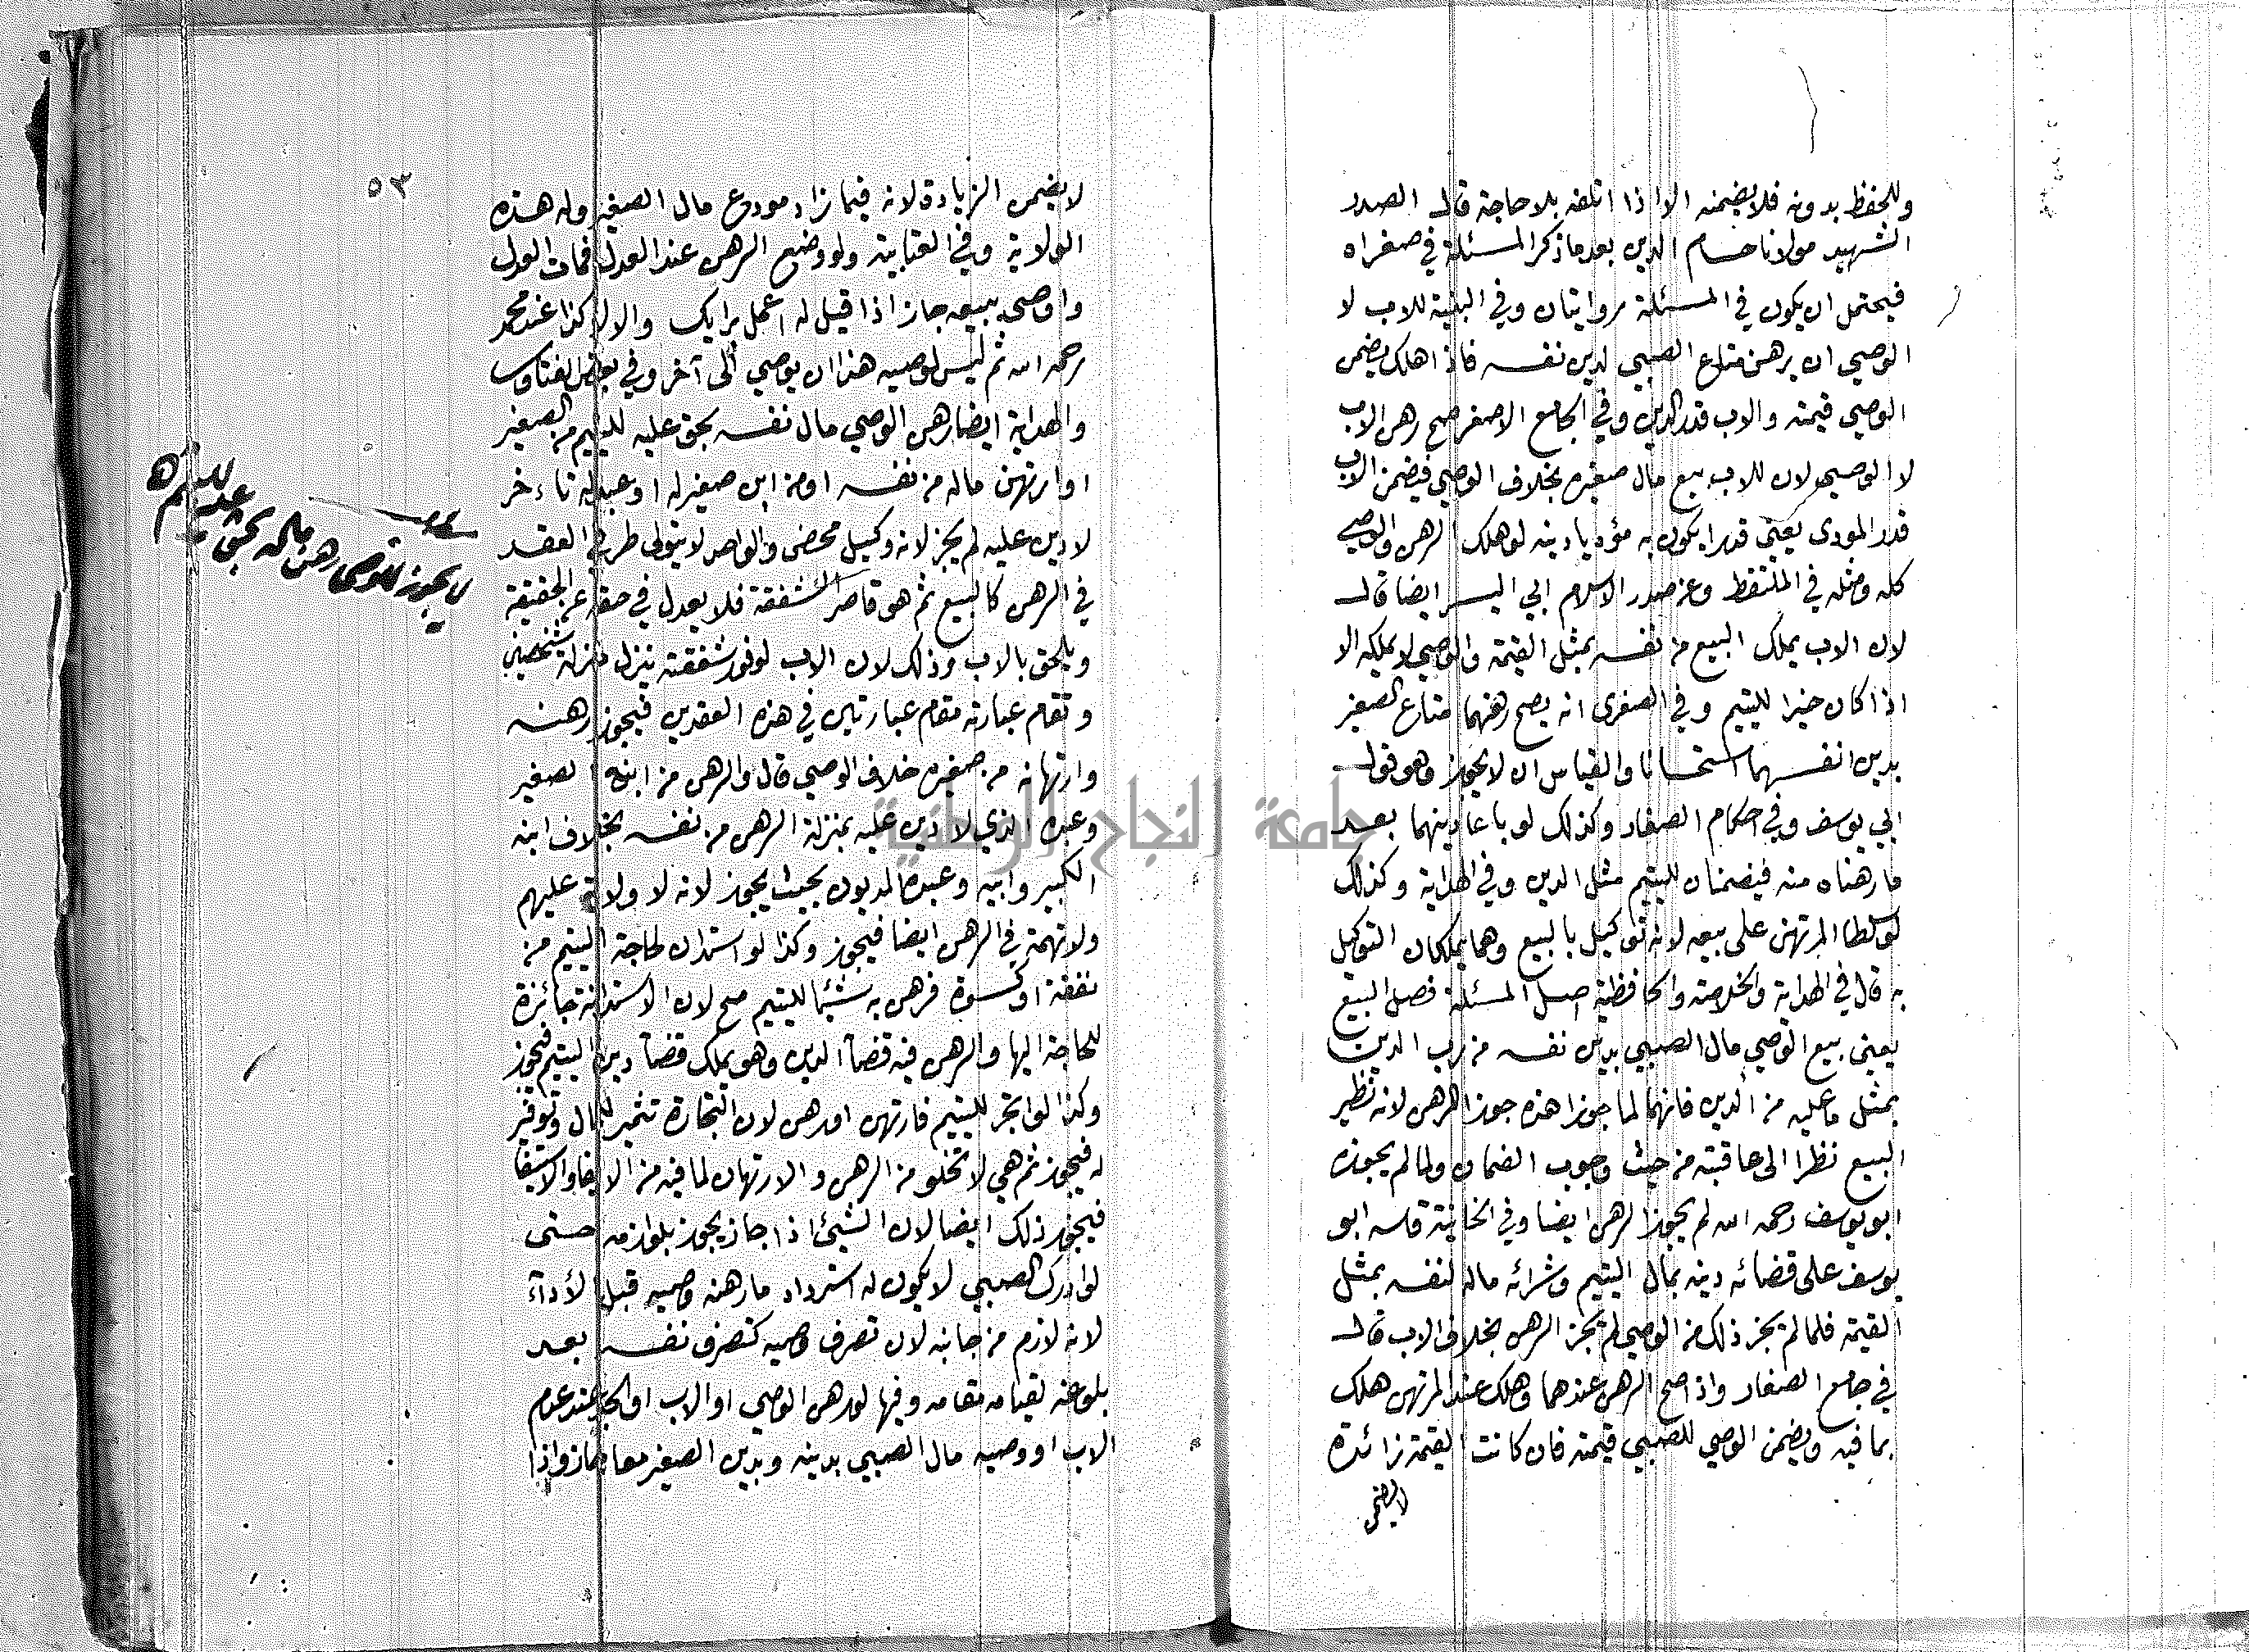 وللحفظ بدونه فلا يضمنه الا اذا اتلفه بلا حاجة قال الصدر
الشهيد مولانا حسام الدين بعد ما ذكر المسئلة في صغراه
فيحتمل ان يكون في المسئلة روايتان وفي البغية للاب لا
الوصي ان يرهن متاع الصبي لدين نفسه فاذا هلك يضمن
الوصي قيمته والاب قدر الدين وفي الجامع الاصغر صح رهن الاب
لا الوصي لان للاب بيع مال صغيره بخلاف الوصي فيضمن الاب
قدر المودى يعني قدرا يكون به مؤديا دينه لو هلك الرهن والوصي
كله ومثله في الملتقط وعن صدر الاسلام ابي اليسر ايضا قال
لان الاب يملك البيع من نفسه بمثل القيمة والوصي لا يملكه الا
اذا كان خيرا لليتيم وفي الصغرى انه يصح رهنهما متاع الصغير
بدين انفسهما استحسانا والقياس ان لا يجوز وهو قول
ابي يوسف وفي احكام الصغار وكذلك لو باعا دينهما بعد
ما رهناه منه فيضمنان لليتيم مثل الدين وفي الهداية وكذلك
لو سلطا المرتهن على بيعه لانه توكيل بالبيع وهما يملكان التوكيل
به قال في الهداية والخلاصة والحافظية اصل المسئلة فصل البيع
يعني بيع الوصي مال الصبي بدين نفسه من رب الدين
بمثل ما عليه من الدين فانهما لما جوزا هذه جوزا الرهن لانه نظير
البيع نظرا الى عاقبته من حيث وجوب الضمان ولما لم يجوزه
ابو يوسف رحمه الله لم يجوز الرهن ايضا وفي الخانية قاسه ابو
يوسف على قضائه دينه بمال اليتيم وشرائه ماله لنفسه بمثل
القيمة فلما لم يجز ذلك من الوصي لم يجز الرهن بخلاف الاب قال
في جامع الصغار واذا صح الرهن عندهما وهلك عند المرتهن هلك
بما فيه ويضمن الوصي للصبي قيمته فان كانت القيمة زائدة
لا يضمن
٥٣
لا يضمن الزيادة لانه فيما زاد مودع مال الصغير وله هذه
الولاية وفي العتابية ولو وضع الرهن عند العدل فمات العدل
واوصى ببيعه جاز اذا قيل له اعمل برايك والا لا كذا عند محمد
رحمه الله ثم ليس لوصيه هذا ان يوصي الى آخر وفي بعض الفتاوى
والهداية ايضا رهن الوصي مال نفسه بحق عليه لليتيم من الصغير
او ارتهن ماله من نفسه او من ابن صغير له او عبد له تاجر
لا دين عليه لم يجز لانه وكيل محض والواحد لا يتولى طرفي العقد
في الرهن كالبيع ثم هو قاصر الشفقة فلا يعدل في حقه عن الحقيقة
ويلحق بالاب وذلك لان الاب لوفور شفقته ينزل منزلة شخصين
وتقام عبارته مقام عبارتين في هذه العقدين فيجوز رهنه
وارتهانه من صغيره خلاف الوصي قال والرهن من ابنه الصغير
وعبده الذي لا دين عليه بمنزلة الرهن من نفسه بخلاف ابنه
الكبير وابيه وعبده المديون بحيث يجوز لانه لا ولاية عليهم
ولا تهمة في الرهن ايضا فيجوز وكذا لو استدان لحاجة اليتيم من
نفقة او كسوة فرهن به شيئا لليتيم صح لان الاستدانة جائزة
للحاجة اليها والرهن فيه قضآ الدين وهو يملك قضآ دين اليتيم فيجوز
وكذا لو اتجر لليتيم فارتهن او رهن لان التجارة تثمير للمال وتوفير
له فيجوز ثم هي لا تخلو من الرهن والارتهان لما فيه من الايفا والاستيفا
فيجوز ذلك ايضا لان الشيئ اذا جاز يجوز بلوازمه حتى
لو ادرك الصبي لا يكون له استرداد ما رهنه وصيه قبل الأدآء
لانه لازم من جانبه لان تصرف وصيه كتصرف نفسه بعد
بلوغه لقيامه مقامه وفيها لو رهن الوصي او الاب او الجد عند عدم
الاب او وصيه مال الصبي بدينه وبدين الصغير معا جاز واذا
لا يجوز للوصى رهن ماله بحق
عليه لليتيم
جامعة النجاح الوطنية